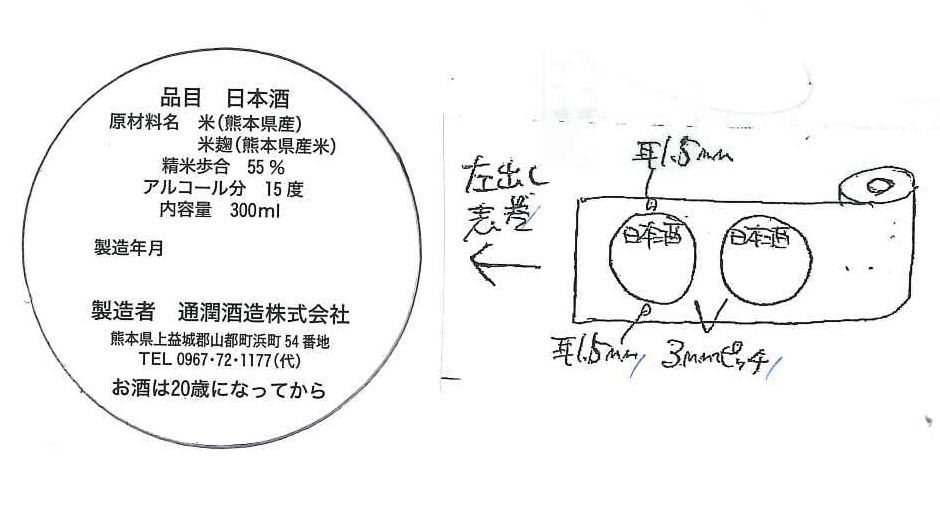 品目 日本酒
原材料名 米(熊本県産)
米麹(熊本県産米)
精米歩合 55%
アルコール分 15度
内容量 300ml
製造年月
製造者 通潤酒造株式会社
熊本県上益城郡山都町浜町54番地
TEL 0967・72・1177(代)
お酒は20歳になってから
左出し
表巻
耳1.5mm
日本酒
日本酒
耳1.5mm
3mmピッチ